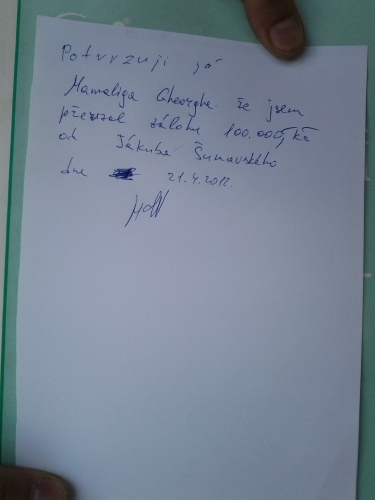 Potvrzuji já
Mamaliga Gheorghe. že jsem
převzal zálohu 100.000,- kč
od Jákuba Šunavského
dne 21.4.2012.